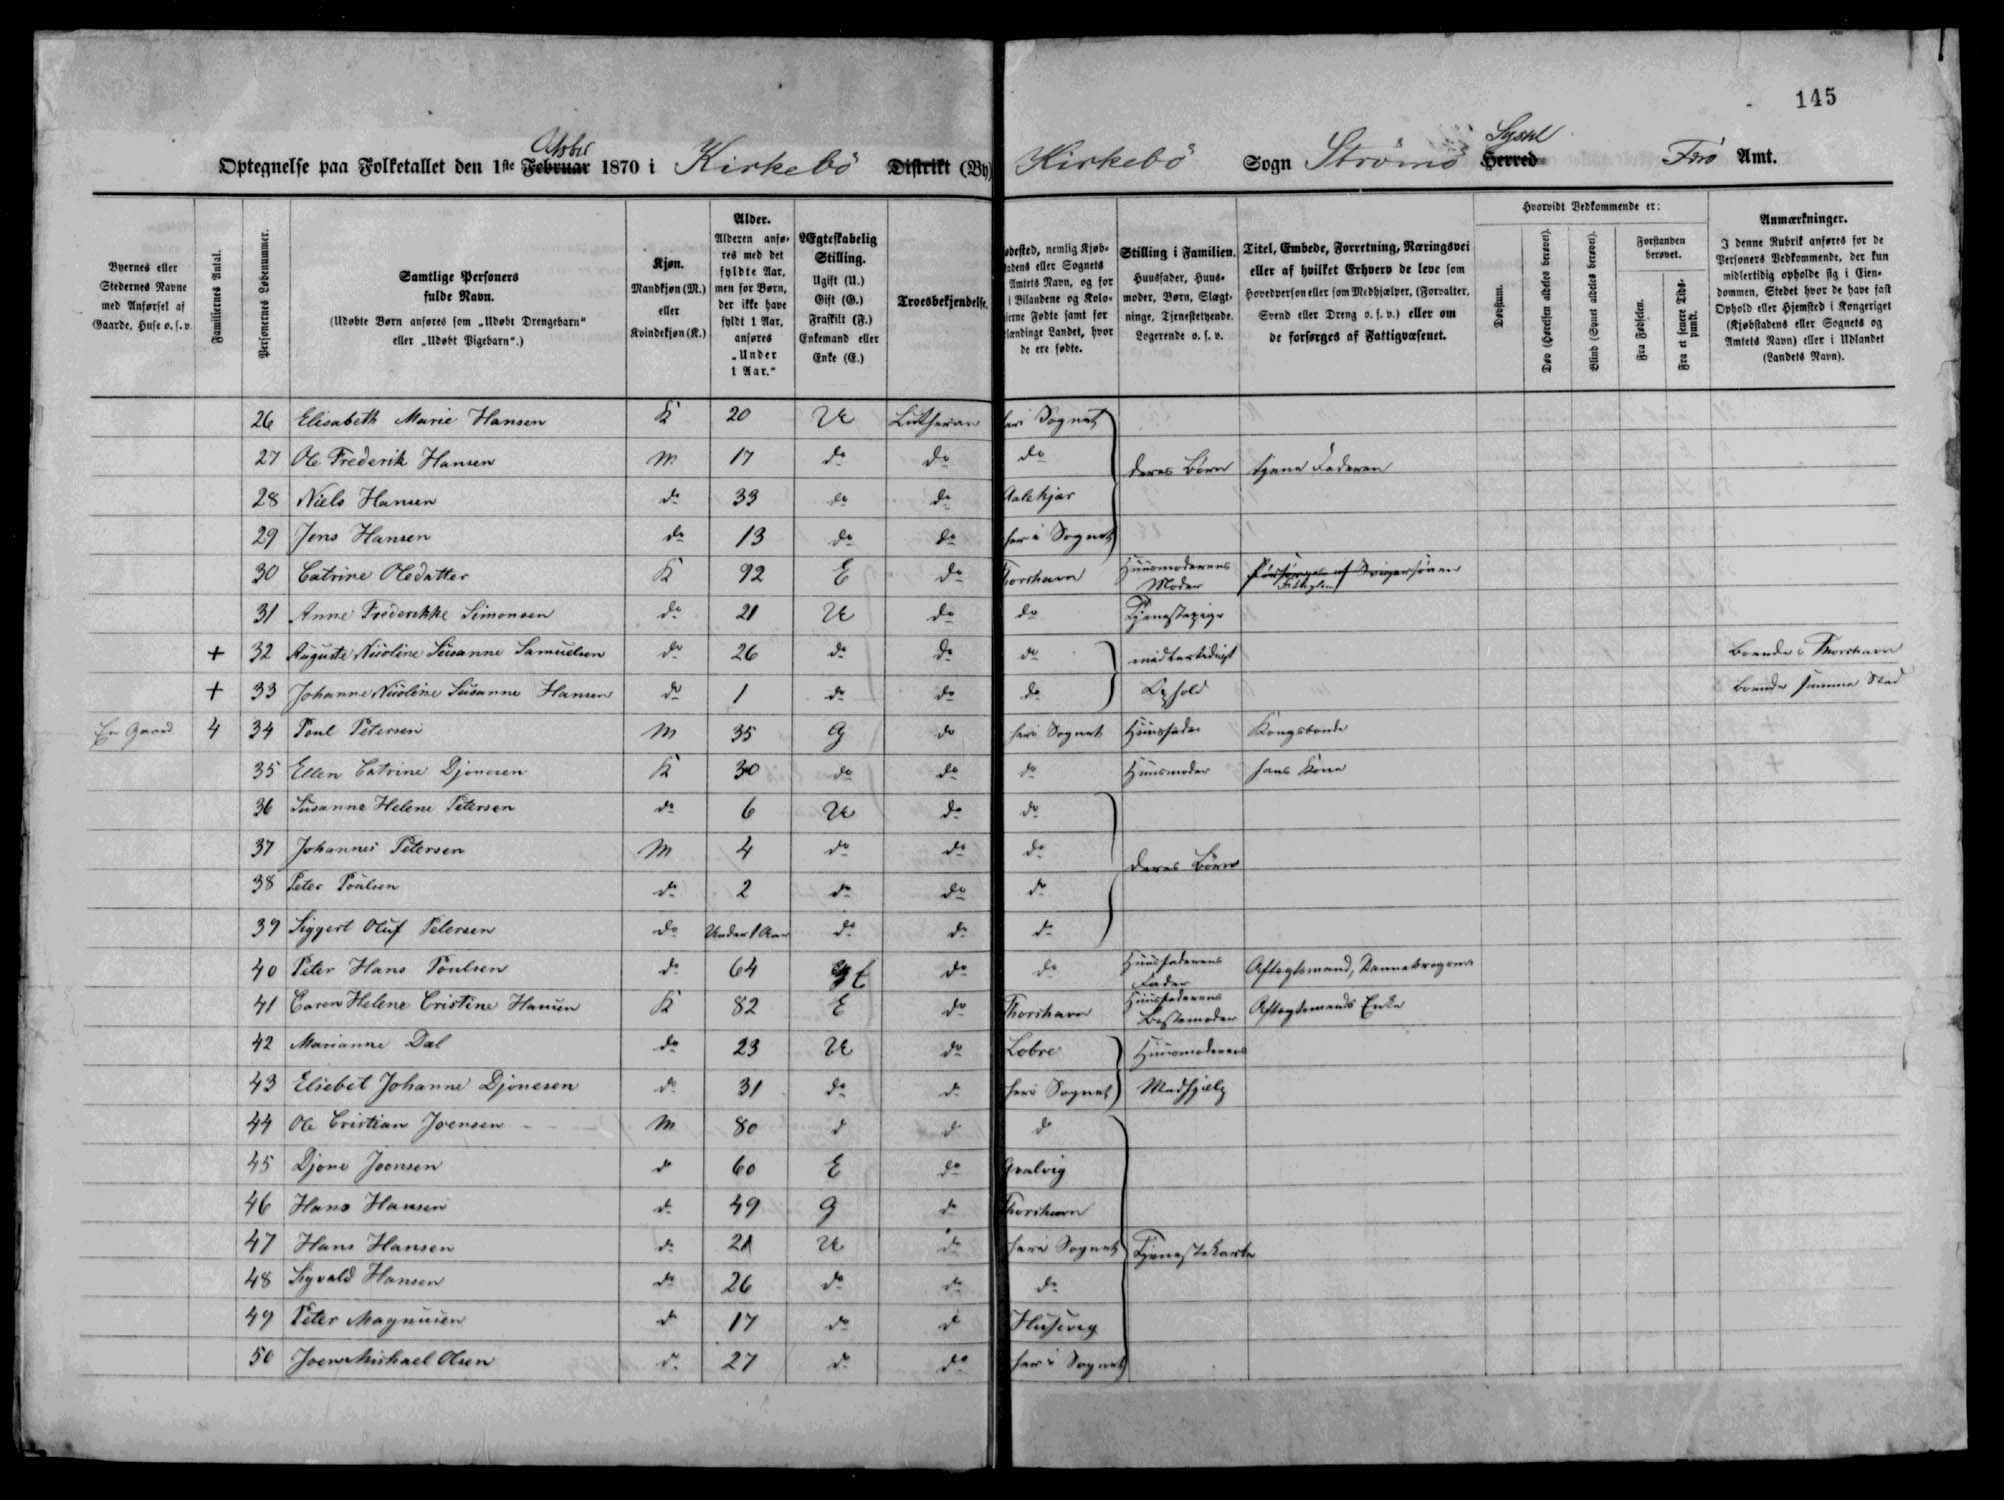 145
Optegnelse paa Folketallet den 1ste Februar Octbr 1870 i Kirkebö Distrikt (By) Kirkebö Sogn Strömö Herred Syssel Færö Amt.
Byernes eller Stedernes Navne med Anførsel af Gaarde, Huse o. s. v.
Familiernes Antal.
Personernes Løbenummer.
Samtlige Personers fulde Navn.
(Udøbte Børn anføres som „Udøbt Drengebarn“ eller „Udøbt Pigebarn“.)
Kjøn.
Mandkjøn (M.) eller Kvindekjøn (K.)
Alder.
Alderen anføres med det fyldte Aar, men for Børn, der ikke have fyldt 1 Aar, anføres „Under 1 Aar.“
Ægteskabelig Stilling.
Ugift (U.) Gift (G.) Fraskilt (F.) Enkemand eller Enke (E.)
Troesbekjendelse.
ødested, nemlig Kjøb-
adens eller Sognets
Amtets Navn, og for
i Bilandene og Kolo-
ierne Fødte samt for
lændinge Landet, hvor
de ere fødte.
Stilling i Familien.
Huusfader, Huusmoder, Børn, Slægtninge, Tjenestetyende, Logerende o. s. v.
Titel, Embede, Forretning, Næringsvei eller af hvilket Erhverv de leve som Hovedperson eller som Medhjælper, (Forvalter, Svend eller Dreng o. s. v.) eller om de forsørges af Fattigvæsenet.
Hvorvidt Vedkommende er:
Døvstum.
Døv (Hørelsen aldeles berøvet).
Blind (Synet aldeles berøvet).
Forstanden berøvet.
Fra Fødselen.
Fra et senere Tidspunkt.
Anmærkninger.
I denne Rubrik anføres for de Personers Vedkommende, der kun midlertidig opholde sig i Eiendommen, Stedet hvor de have fast Ophold eller Hjemsted i Kongeriget (Kjøbstadens eller Sognets og Amtets Navn) eller i Udlandet (Landets Navn).
26 Elisabeth Marie Hansen K 20 U Lutheran her i Sognet
27 Ole Frederik Hansen M 17 do do do deres Börn tjene Faderen
28 Niels Hansen do 33 do do
29 Jens Hansen do 13 do do her i Sognet
30 Catrine Oledatter K 92 E do Thorshavn Huusmoderens Moder Forsörges af Svigersönnen
31 Anne Frederikke Simonsen do 21 U do do Tjenestepige
+ 32 Auguste Nicoline Susanne Samuelsen do 26 do do do midlertidigt boende i Thorshavn
+ 33 Johanne Nicoline Susanne Hansen do 1 do do do Ophold boende samme Sted
En Gaard 4 34 Poul Petersen M 35 G do her i Sognet Huusfader Kongsbonde
35 Ellen Catrine Djonesen K 30 do do do Huusmoder hans Kone
36 Susanne Helene Petersen do 6 U do do
37 Johannes Petersen M 4 do do do deres Börn
38 Peter Poulsen do 2 do do do
39 Siggert Oluf Petersen do Under 1 Aar do do do
40 Peter Hans Poulsen do 64 do do Huusfaderens Fader Aftægtsmand,
41 Caren Helene Cristine Hansen K 82 E do Thorshavn Huusfaderens Bestemoder Aftægtsmands Enke
42 Marianne Dal do 23 U do Huusmoderens
43 Elsebet Johanne Djonesen do 31 do do her i Sognet Medhjelp
44 Ole Cristian Joensen M 80 d d do
45 Djone Joensen do 60 E do Qvalvig
46 Hans Hansen do 49 G do Thorshavn
47 Hans Hansen do 21 U do her i Sognet Tjenestekarle
48 Sigvald Hansen do 26 do do do
49 Peter Magnusen do 17 do d Husevig
50 Joen Michael Olsen do 27 do do her i Sognet